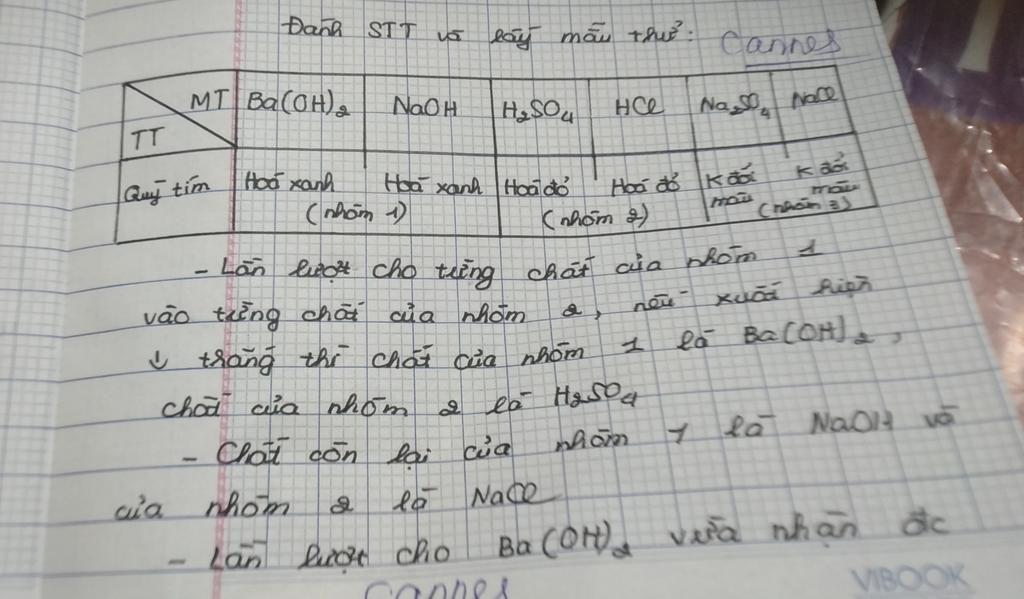 Đánh STT và lấy mẫu thử: Cannes
MT Ba(OH)₂ NaOH H₂SO₄ HCl Na₂SO₄ NaCl
TT
Quỳ tím Hoá xanh Hoá xanh Hoá đỏ Hoá đỏ K đổi màu K đổi màu
(nhóm 1) (nhóm 2) (nhóm 3)
- Lần lượt cho từng chất của nhóm 1
vào từng chất của nhóm 2, nếu xuất hiện
↓ trắng thì chất của nhóm 1 là Ba(OH)₂,
chất của nhóm 2 là H₂SO₄
- Chất còn lại của nhóm 1 là NaOH và
của nhóm 2 là NaCl
- Lần lượt cho Ba(OH)₂ vừa nhận đc
Cannes
VIBOOK